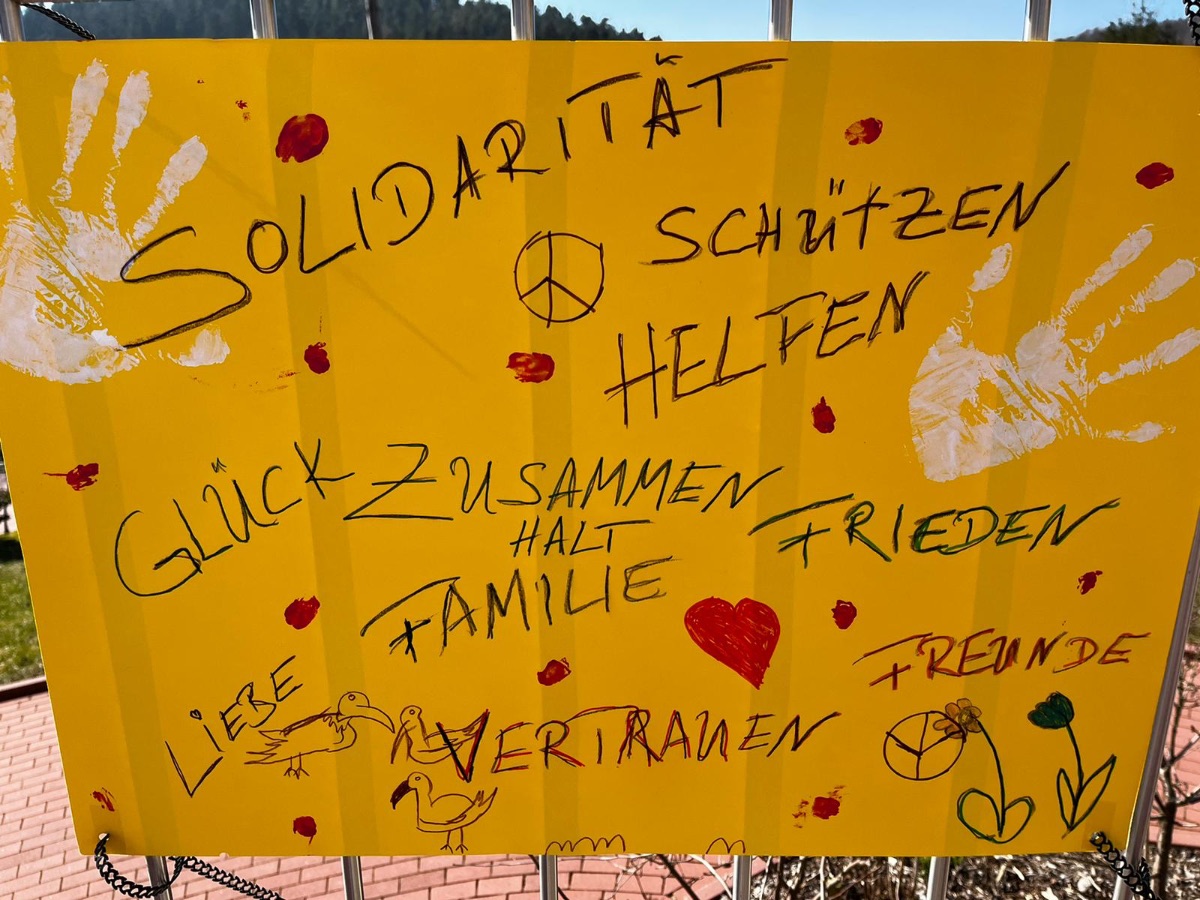 SOLIDARITÄT
SCHÜTZEN
HELFEN
GLÜCK
ZUSAMMEN
HALT
FRIEDEN
FAMILIE
FREUNDE
LiEBE
VERTRAUEN